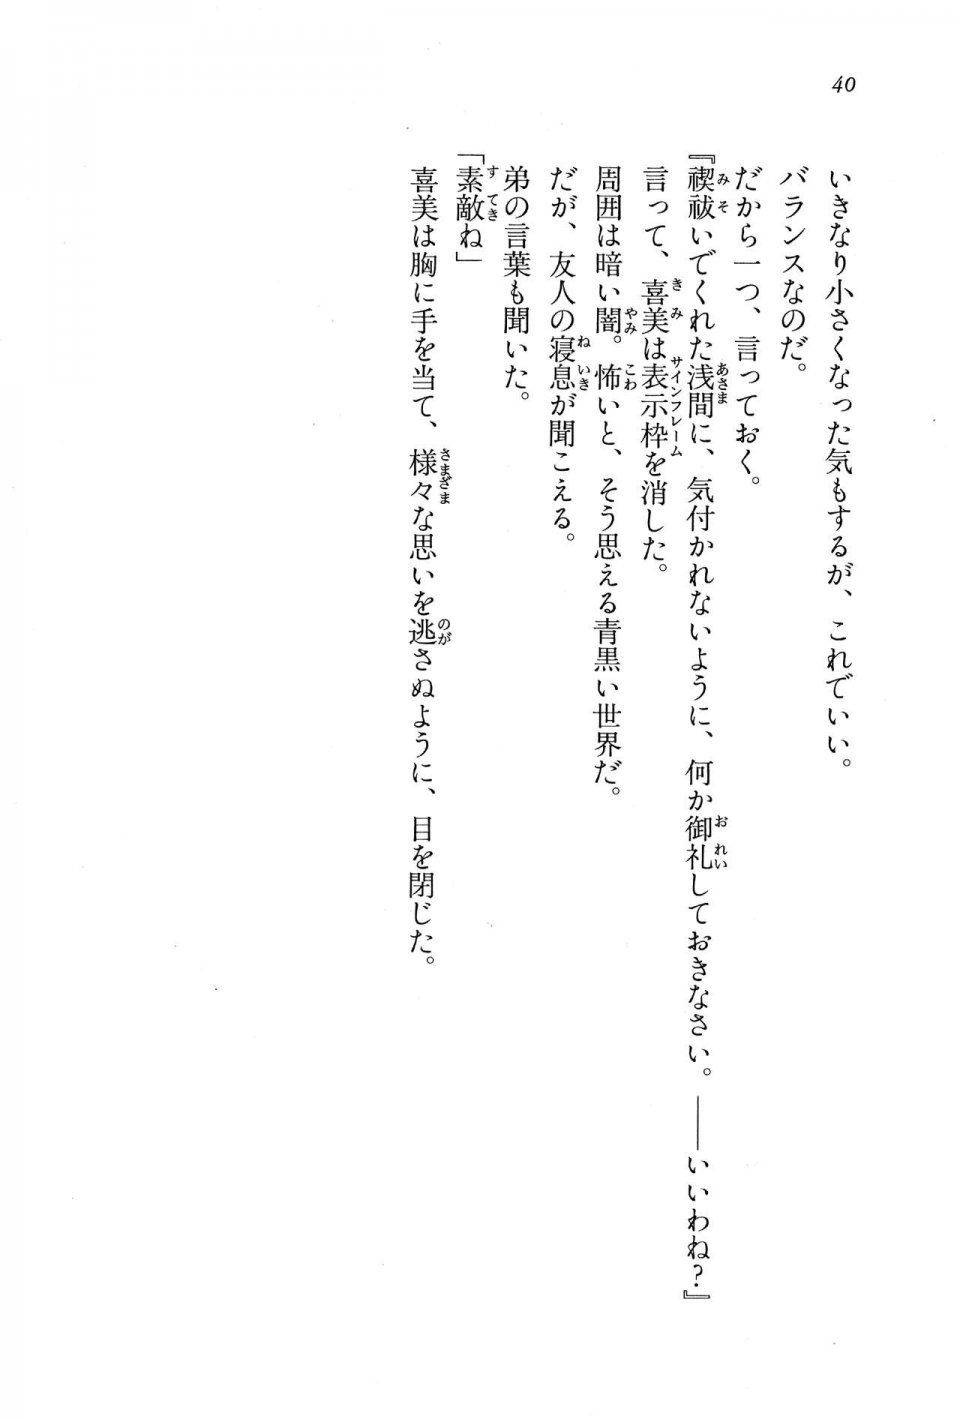 40
いきなり小さくなった気もするが、これでいい。
バランスなのだ。
だから一つ、言っておく。
『禊祓いでくれた浅間に、気付かれないように、何か御礼しておきなさい。――いいわね？』
言って、喜美は表示枠を消した。
周囲は暗い闇。怖いと、そう思える青黒い世界だ。
だが、友人の寝息が聞こえる。
弟の言葉も聞いた。
「素敵ね」
喜美は胸に手を当て、様々な思いを逃さぬように、目を閉じた。